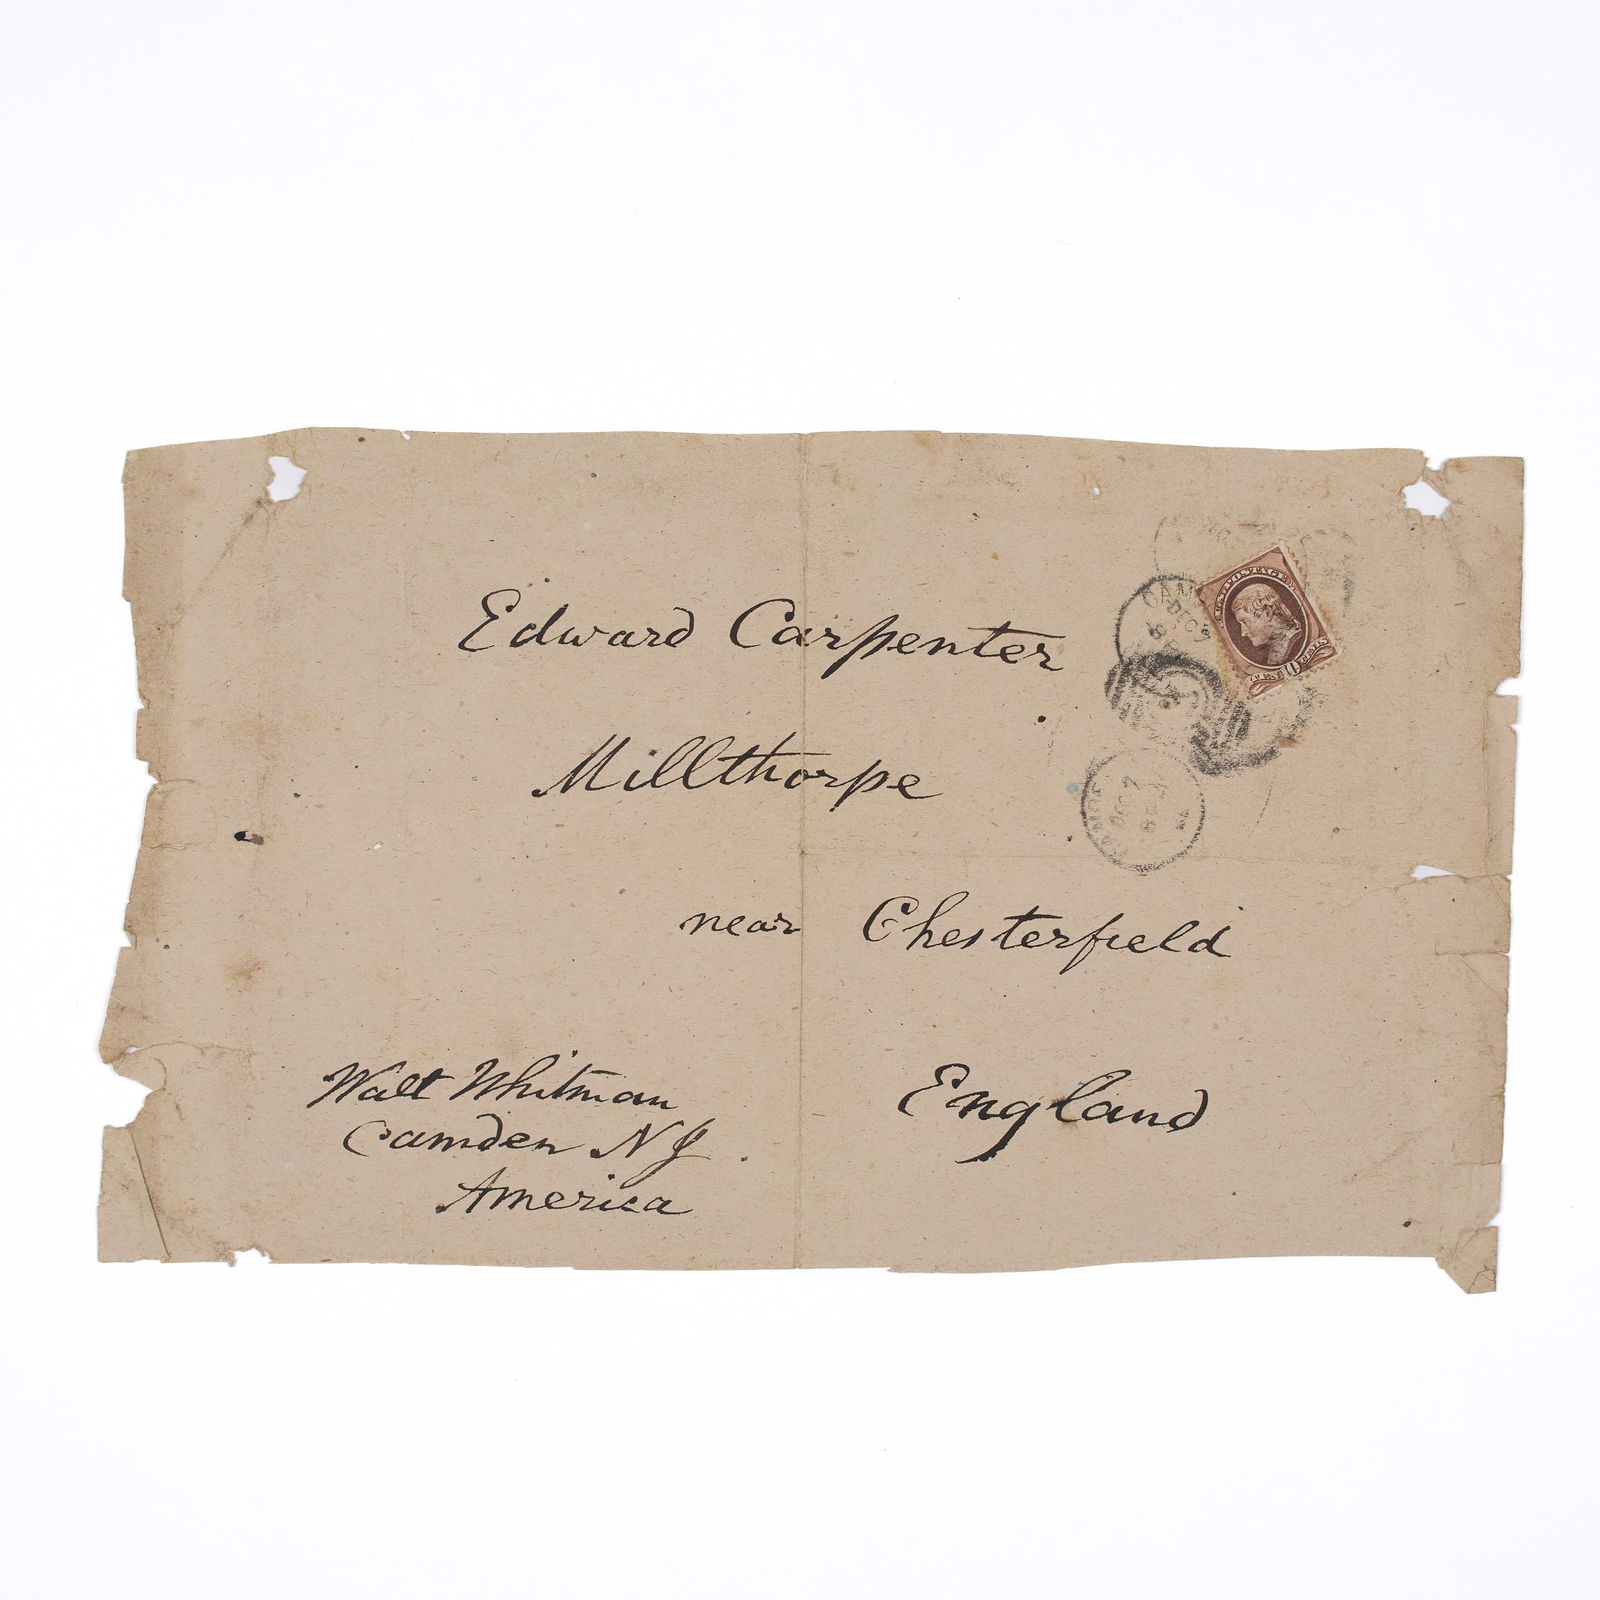 Edward Carpenter
Millthorpe
near Chesterfield
England
Walt Whitman
Camden N J.
America
U.S. POSTAGE
10
CENTS
CAM
DEC
DEC 7